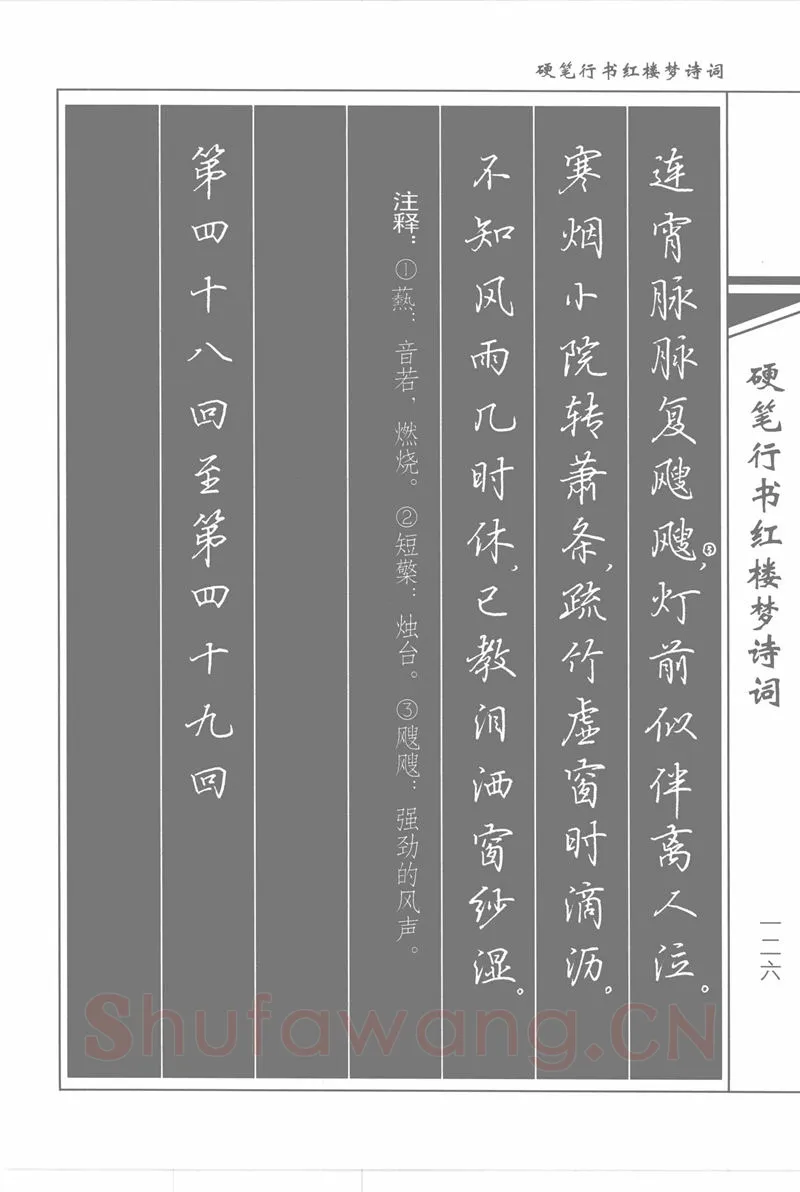 硬笔行书红楼梦诗词
连宵脉脉复飕飕,③灯前似伴离人泣。
寒烟小院转萧条,疏竹虚窗时滴沥。
不知风雨几时休,已教泪洒窗纱湿。
注释：①爇：音若，燃烧。②短檠：烛台。③飕飕：强劲的风声。
第四十八回至第四十九回
硬笔行书红楼梦诗词
一二六
Shufawang.CN